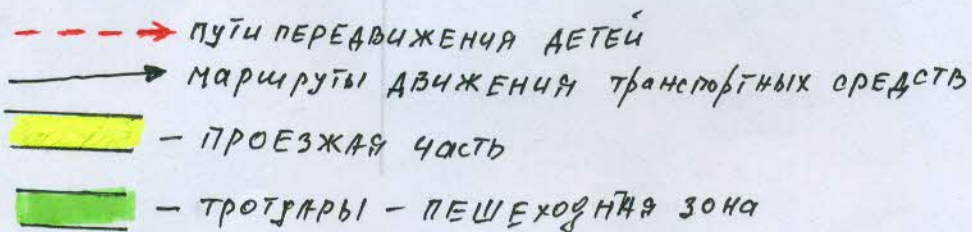 пути ПЕРЕДВИЖЕНИЯ ДЕТЕЙ
маршруты движения транспортных средств
- ПРОЕЗЖАЯ часть
- ТРОТУАРЫ - ПЕШЕХОДНАЯ ЗОНА